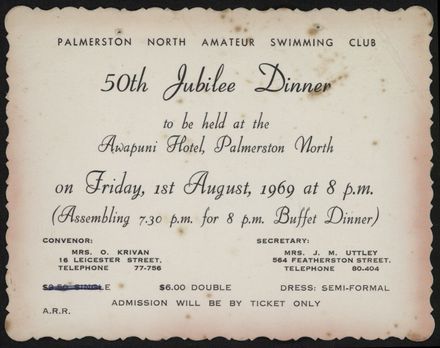 PALMERSTON NORTH AMATEUR SWIMMING CLUB
50th Jubilee Dinner
to be held at the
Awapuni Hotel, Palmerston North
on Friday, 1st August, 1969 at 8 p.m.
(Assembling 7.30 p.m. for 8 p.m. Buffet Dinner)
CONVENOR: SECRETARY:
MRS. O. KRIVAN MRS. J. M. UTTLEY
16 LEICESTER STREET, 564 FEATHERSTON STREET.
TELEPHONE 77-756 TELEPHONE 80.404
$6.00 DOUBLE DRESS: SEMI-FORMAL
ADMISSION WILL BE BY TICKET ONLY
A.R.R.